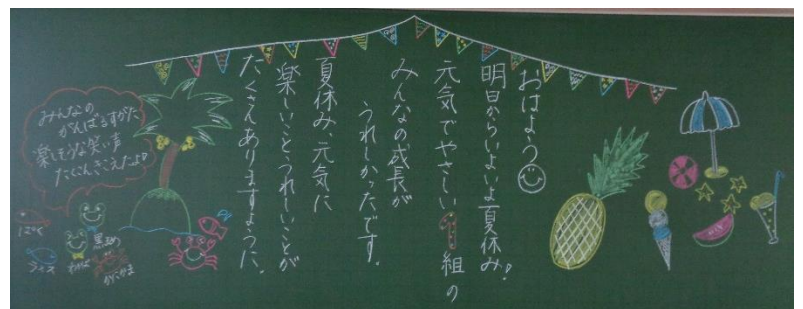 おはよう
明日からいよいよ夏休み!
元気でやさしい1組の
みんなの成長が
うれしかったです。
夏休み、元気に
楽しいこと、うれしいことが
たくさんありますように。
みんなの
がんばるすがた
楽しそうな笑い声
たくさんきこえたよ!